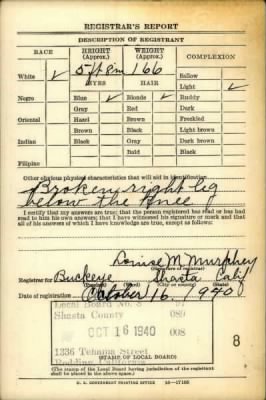 REGISTRAR'S REPORT
DESCRIPTION OF REGISTRANT
RACE HEIGHT (Approx.) WEIGHT (Approx.) COMPLEXION
5 ft 8 in 166
EYES HAIR Sallow
White ✓ Light ✓
Negro Blue ✓ Blonde ✓ Ruddy
Gray Red Dark
Oriental Hazel Brown Freckled
Brown Black Light brown
Indian Black Gray Dark brown
Bald Black
Filipino
Other obvious physical characteristics that will aid in identification
Broken right leg
below the knee
I certify that my answers are true; that the person registered has read or has had
read to him his own answers; that I have witnessed his signature or mark and that
all of his answers of which I have knowledge are true, except as follows:
Louise M. Murphey
(Signature of registrar)
Registrar for Buckeye Shasta Calif
Date of registration October 16 1940
Local Board No.
Shasta County 089
OCT 16 1940
1336 Tehama Street
Redding California
8
(STAMP OF LOCAL BOARD)
(The stamp of the Local Board having jurisdiction of the registrant
shall be placed in the above space.)
U. S. GOVERNMENT PRINTING OFFICE 16—17105